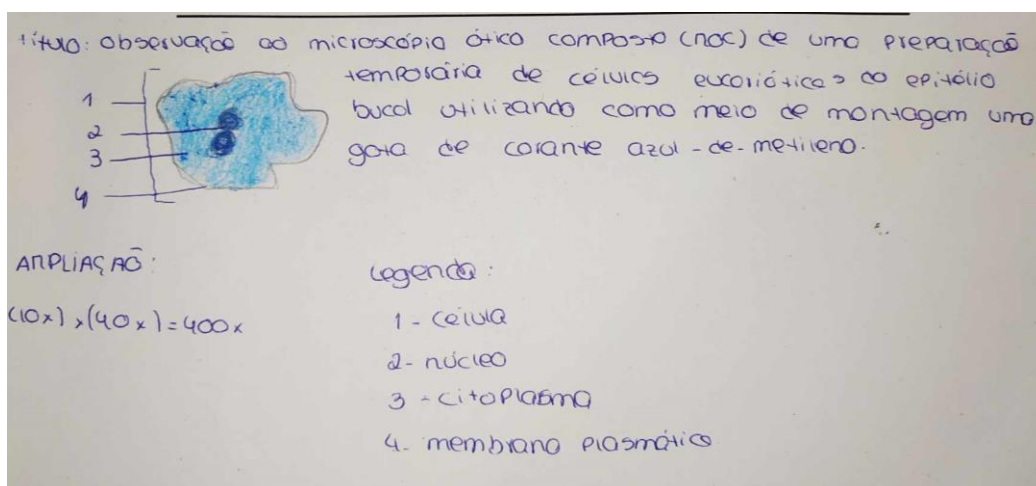 título: observação ao microscópio ótico composto (MOC) de uma preparação
temporária de células eucarióticas do epitélio
bucal utilizando como meio de montagem uma
gota de corante azul-de-metileno.
1
2
3
4
AMPLIAÇÃO:
(10x) x (40x) = 400x
Legenda:
1 - célula
2- núcleo
3 - citoplasma
4- membrana plasmática